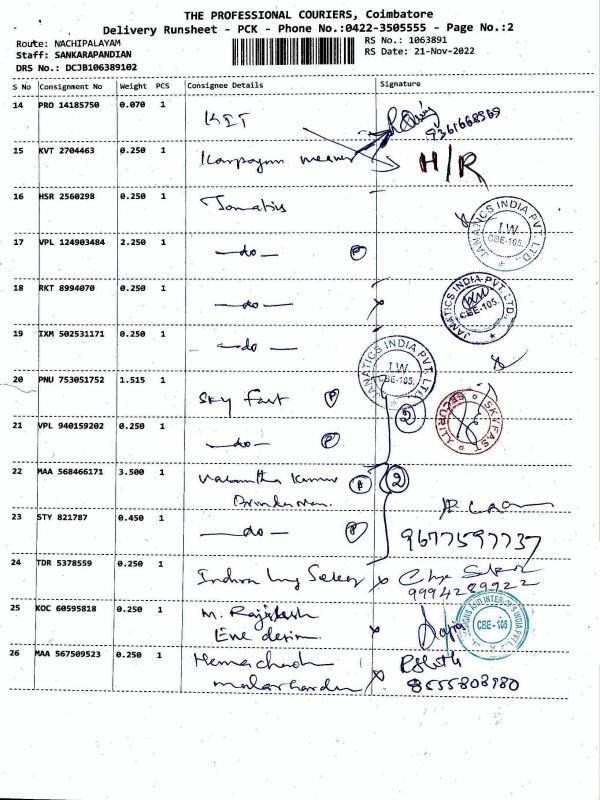 THE PROFESSIONAL COURIERS, Coimbatore
Delivery Runsheet - PCK - Phone No.:0422-3505555 - Page No.:2
Route: NACHIPALAYAM
RS No.: 1063891
Staff: SANKARAPANDIAN
RS Date: 21-Nov-2022
DRS No.: DCJB106389102
S No Consignment No Weight PCS Consignee Details Signature
14 PRO 14185750 0.070 1 KIT
9361668569
15 KVT 2704463 0.250 1 H/R
16 HSR 2560298 0.250 1
JANATICS INDIA PVT. LTD. I.W CBE-105.
17 VPL 124903484 2.250 1 —do— P
18 RKT 8994070 0.250 1 —do— x
JANATICS INDIA PVT. LTD. CBE-105.
19 IXM 502531171 0.250 1 —do—
JANATICS INDIA PVT. LTD. I.W CBE-105.
20 PNU 753051752 1.515 1 Sky Fast P
2
SKYFAST SECURITY
21 VPL 940159202 0.250 1 —do— P
22 MAA 568466171 3.500 1 Vasantha Kumar 2
23 STY 821787 0.450 1 —do— P
9677597737
24 TDR 5378559 0.250 1 x
9994289922
25 KOC 60595818 0.250 1 M. Rajilesh
x
CBE - 105
26 MAA 567509523 0.250 1 x
8555808980